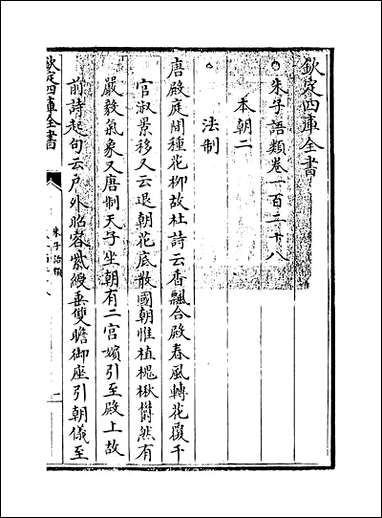 欽定四庫全書
朱子語類卷一百二十八
本朝二
法制
唐殿庭間種花柳故杜詩云香飄合殿春風轉花覆千
官淑景移又云退朝花底散國朝惟植槐楸鬱然有
嚴毅氣象又唐制天子坐朝有二宫嬪引至殿上故
前詩起句云户外昭容紫綬垂雙瞻御座引朝儀至
欽定四庫全書
朱子語類